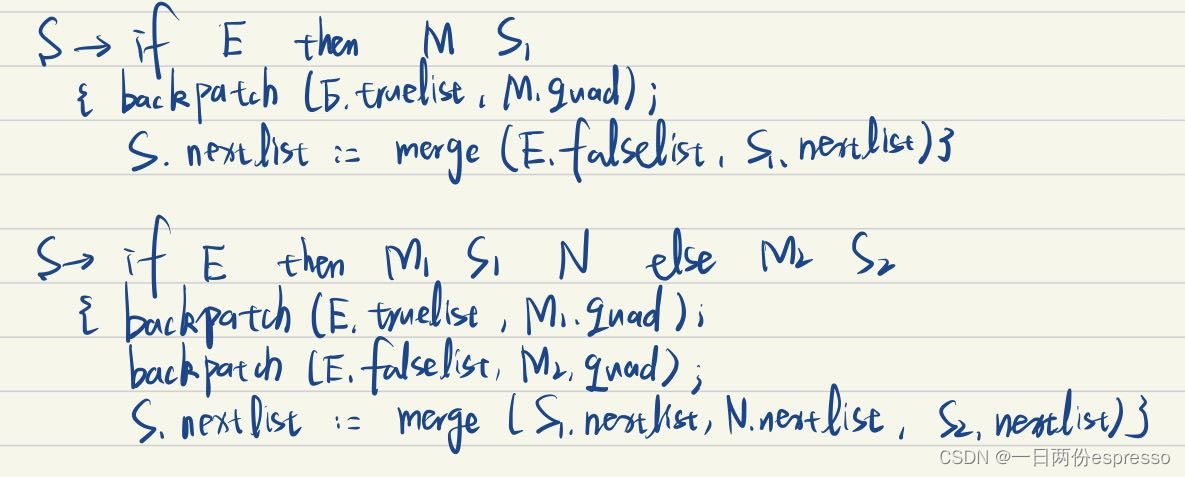 S → if E then M S₁
{ backpatch (E.truelist, M.quad);
S.nextlist := merge (E.falselist, S₁.nextlist)}
S → if E then M₁ S₁ N else M₂ S₂
{ backpatch (E.truelist, M₁.quad);
backpatch (E.falselist, M₂.quad);
S.nextlist := merge (S₁.nextlist, N.nextlist, S₂.nextlist)}
CSDN @一日两份espresso